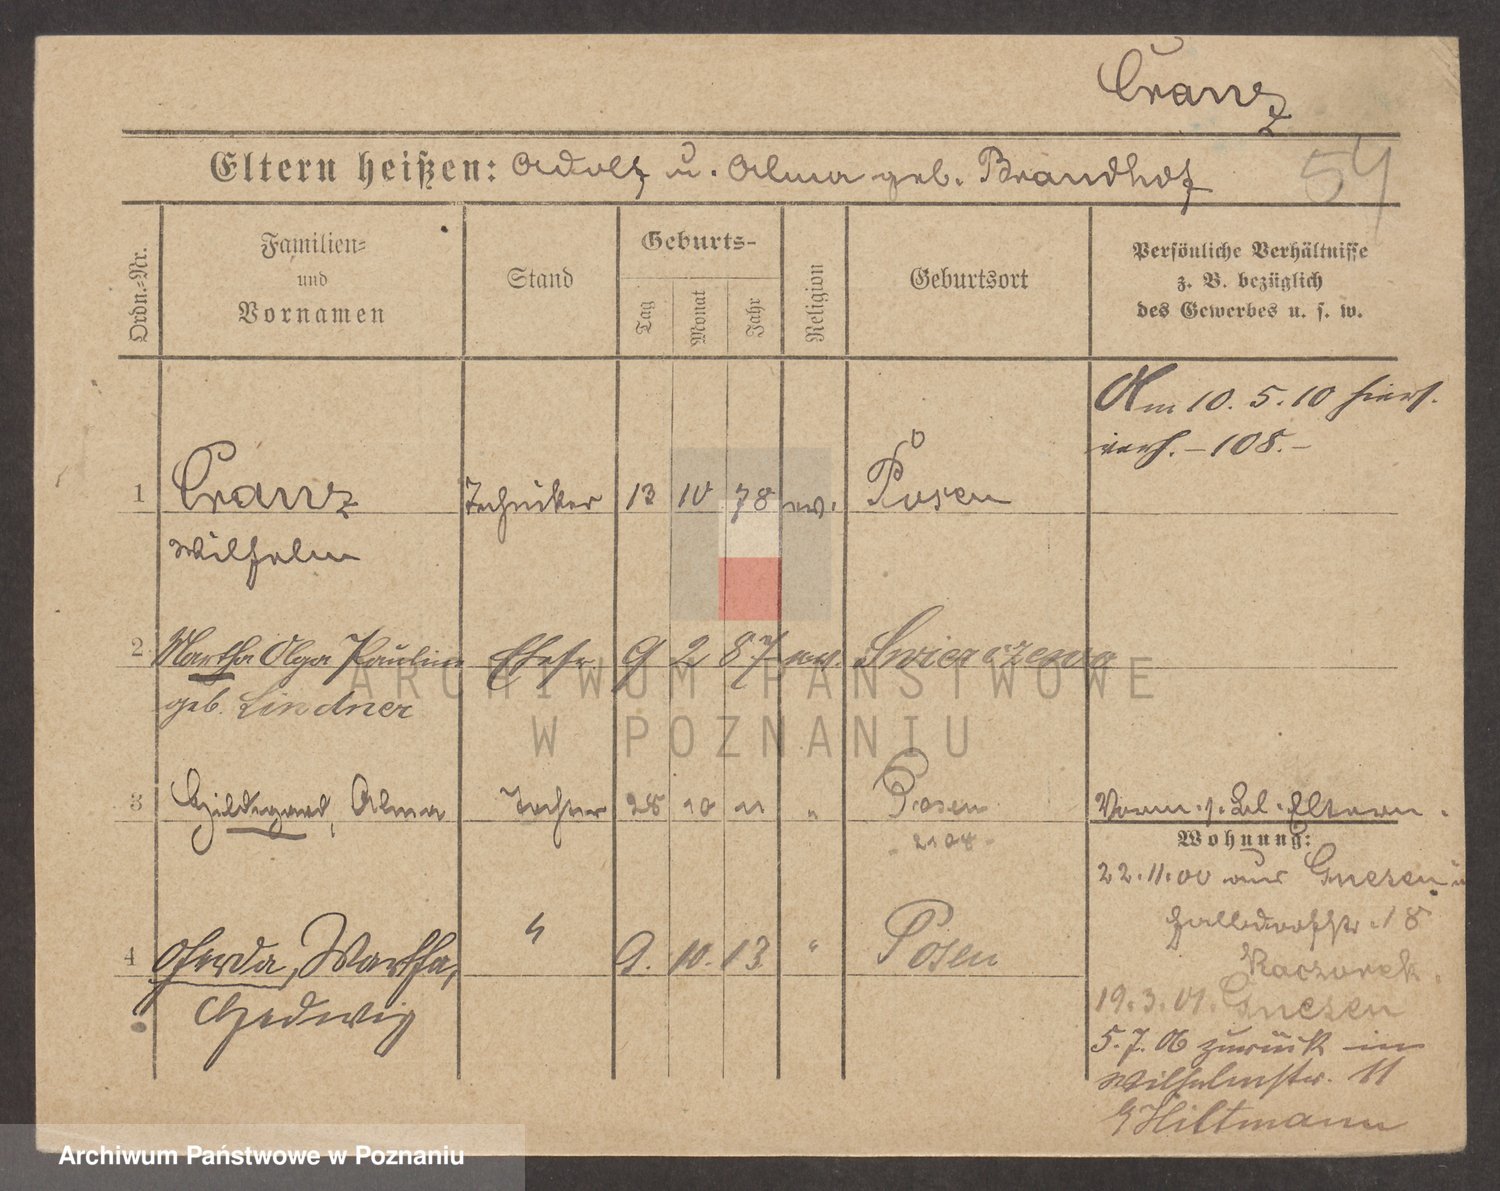 Cranz
Eltern heißen: Adolf u. Alma geb. Brandhof
54
Ordn.-Nr.
Familien-
und
Vornamen
Stand
Geburts-
Tag
Monat
Jahr
Religion
Geburtsort
Persönliche Verhältnisse
z. B. bezüglich
des Gewerbes u. s. w.
Am 10. 5. 10 hiers.
verh. – 108. –
1 Cranz Techniker 13 10 78 ev. Posen
Wilhelm
2 Martha Olga Pauline Ehefr. 9 2 87 ev. Swierczewo
geb. Lindner
3 Hildegard, Alma Tochter 28 10 11 " Posen
2108
Vorm. s. Bl. Eltern.
Wohnung:
22.11.00 aus Gnesen
18
Kaczorek.
19.3.01. Gnesen
5.7.06 zurück in
Wilhelmstr. 11
Hiltmann
4 Gerda, Martha, " 9. 10. 13 " Posen
Hedwig
ARCHIWUM PAŃSTWOWE
W POZNANIU
Archiwum Państwowe w Poznaniu